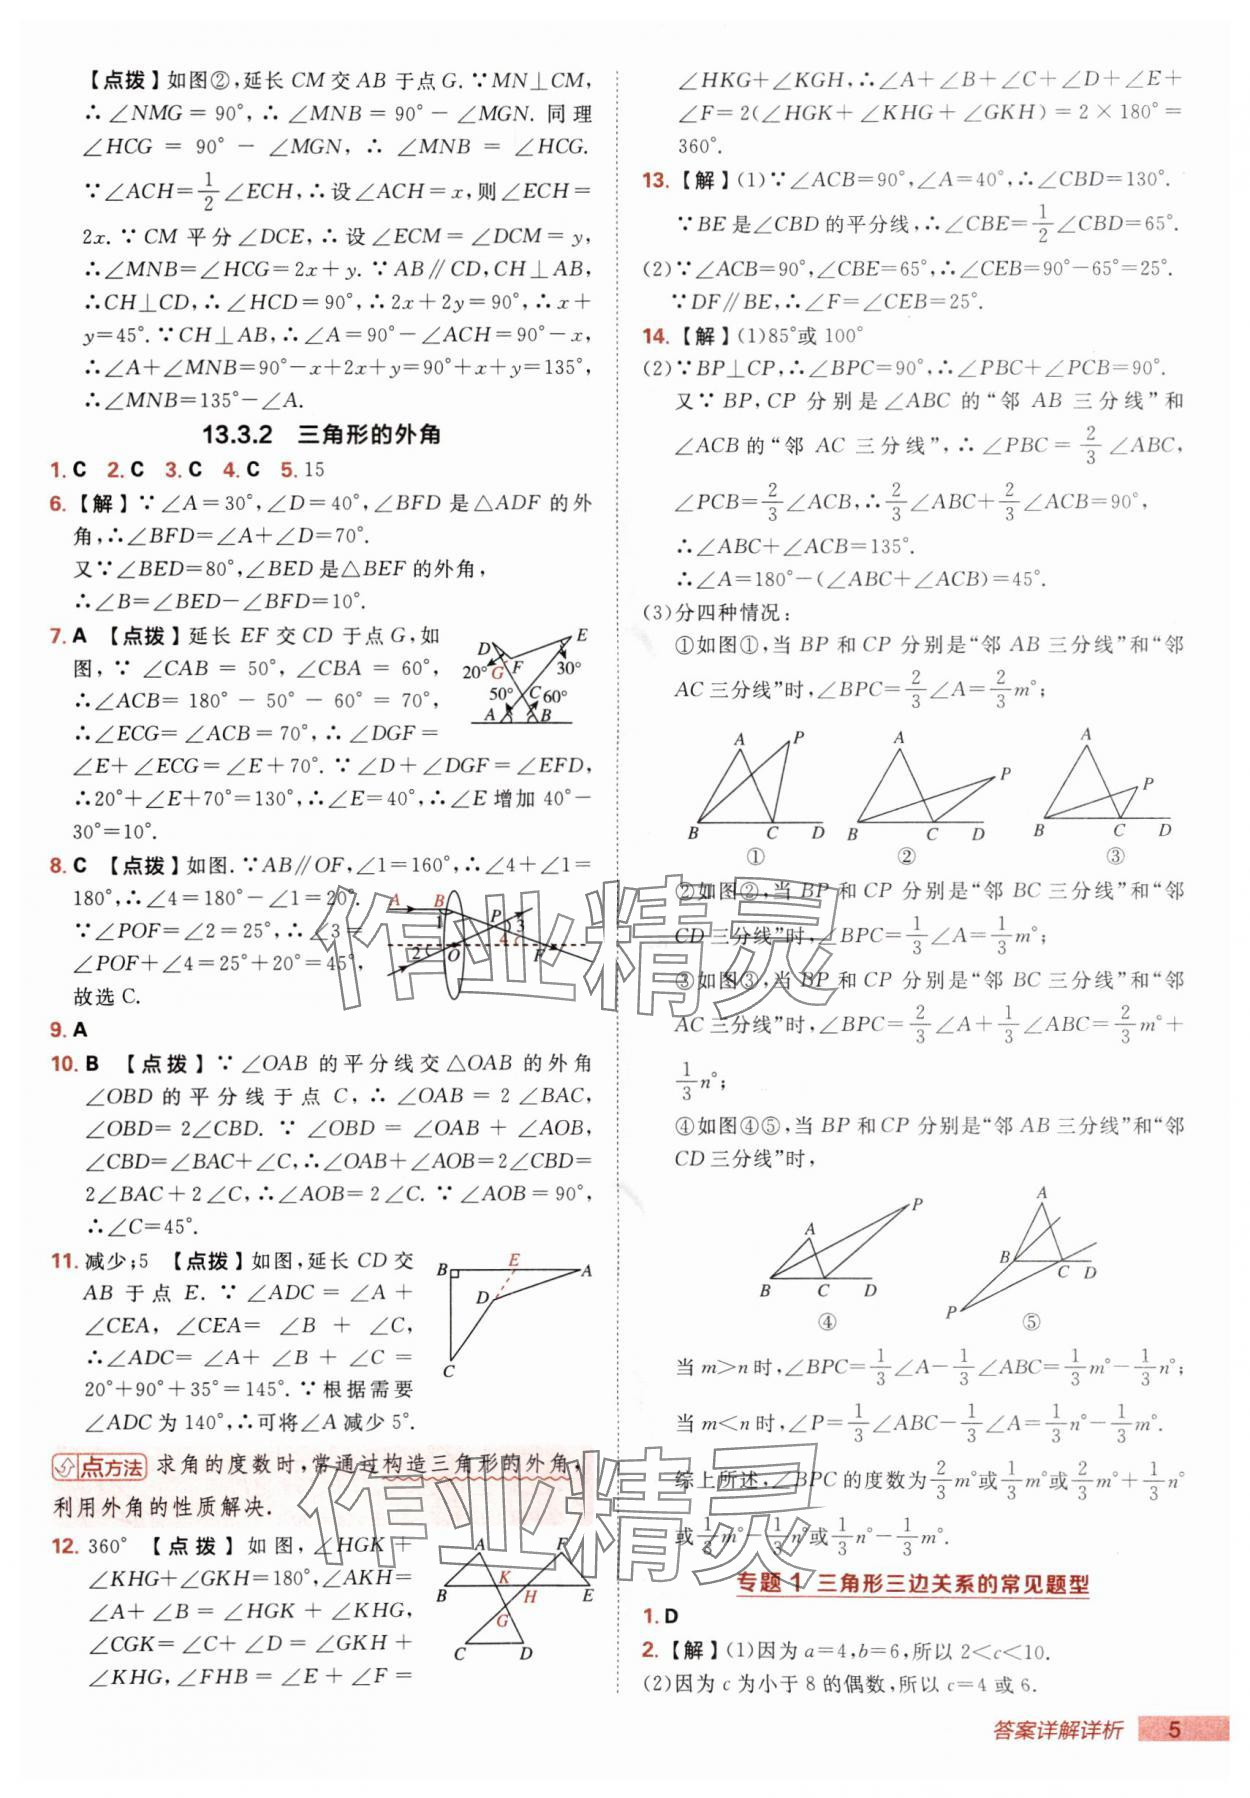 【点拨】如图②,延长 CM 交 AB 于点 G. ∵MN⊥CM,
∴∠NMG=90°,∴∠MNB=90°-∠MGN. 同理
∠HCG = 90° - ∠MGN, ∴ ∠MNB = ∠HCG.
∵∠ACH=1/2∠ECH,∴设∠ACH=x,则∠ECH=
2x. ∵CM 平分∠DCE,∴设∠ECM=∠DCM=y,
∴∠MNB=∠HCG=2x+y. ∵AB∥CD,CH⊥AB,
∴CH⊥CD,∴∠HCD=90°,∴2x+2y=90°,∴x+
y=45°. ∵CH⊥AB,∴∠A=90°-∠ACH=90°-x,
∴∠A+∠MNB=90°-x+2x+y=90°+x+y=135°,
∴∠MNB=135°-∠A.
13.3.2 三角形的外角
1. C 2. C 3. C 4. C 5. 15
6. 【解】∵∠A=30°,∠D=40°,∠BFD 是△ADF 的外
角,∴∠BFD=∠A+∠D=70°.
又∵∠BED=80°,∠BED是△BEF的外角,
∴∠B=∠BED-∠BFD=10°.
7. A 【点拨】延长 EF 交 CD 于点 G,如
图,∵ ∠CAB = 50°,∠CBA = 60°,
∴∠ACB= 180° - 50° - 60° = 70°,
∴∠ECG=∠ACB=70°,∴∠DGF=
∠E+∠ECG=∠E+70°. ∵∠D+∠DGF=∠EFD,
∴20°+∠E+70°=130°,∴∠E=40°,∴∠E 增加 40°-
30°=10°.
D E F G 20° 30° 50° C 60° A B
8. C 【点拨】如图. ∵AB∥OF,∠1=160°,∴∠4+∠1=
180°,∴∠4=180°-∠1=20°.
∵∠POF=∠2=25°,∴∠3=
∠POF+∠4=25°+20°=45°,
故选 C.
A B 1 P 3 4 2 O F
9. A
10. B 【点拨】∵∠OAB 的平分线交△OAB 的外角
∠OBD 的平分线于点 C,∴∠OAB=2∠BAC,
∠OBD=2∠CBD. ∵∠OBD=∠OAB+∠AOB,
∠CBD=∠BAC+∠C,∴∠OAB+∠AOB=2∠CBD=
2∠BAC+2∠C,∴∠AOB=2∠C. ∵∠AOB=90°,
∴∠C=45°.
11. 减少;5 【点拨】如图,延长 CD 交
AB 于点 E. ∵∠ADC=∠A+
∠CEA, ∠CEA= ∠B + ∠C,
∴∠ADC= ∠A+ ∠B + ∠C =
20°+90°+35°=145°. ∵根据需要
∠ADC为140°,∴可将∠A减少5°.
B E A D C
点方法 求角的度数时,常通过构造三角形的外角,
利用外角的性质解决.
12. 360° 【点拨】如图,∠HGK+
∠KHG+∠GKH=180°,∠AKH=
∠A+∠B=∠HGK+∠KHG,
∠CGK=∠C+∠D=∠GKH+
∠KHG,∠FHB=∠E+∠F=
A F K B H E G C D
∠HKG+∠KGH,∴∠A+∠B+∠C+∠D+∠E+
∠F=2(∠HGK+∠KHG+∠GKH)=2×180°=
360°.
13. 【解】(1)∵∠ACB=90°,∠A=40°,∴∠CBD=130°.
∵BE是∠CBD的平分线,∴∠CBE=1/2∠CBD=65°.
(2)∵∠ACB=90°,∠CBE=65°,∴∠CEB=90°-65°=25°.
∵DF∥BE,∴∠F=∠CEB=25°.
14. 【解】(1)85°或100°
(2)∵BP⊥CP,∴∠BPC=90°,∴∠PBC+∠PCB=90°.
又∵BP,CP 分别是∠ABC 的“邻 AB 三分线”和
∠ACB 的“邻 AC 三分线”,∴∠PBC=2/3∠ABC,
∠PCB=2/3∠ACB,∴2/3∠ABC+2/3∠ACB=90°,
∴∠ABC+∠ACB=135°.
∴∠A=180°-(∠ABC+∠ACB)=45°.
(3)分四种情况:
①如图①,当 BP 和 CP 分别是“邻 AB 三分线”和“邻
AC三分线”时,∠BPC=2/3∠A=2/3m°;
A P B C D ①
A P B C D ②
A P B C D ③
②如图②,当 BP 和 CP 分别是“邻 BC 三分线”和“邻
CD三分线”时,∠BPC=1/3∠A=1/3m°;
③如图③,当 BP 和 CP 分别是“邻 BC 三分线”和“邻
AC三分线”时,∠BPC=2/3∠A+1/3∠ABC=2/3m°+
1/3n°;
④如图④⑤,当 BP 和CP 分别是“邻 AB 三分线”和“邻
CD三分线”时,
A P B C D ④
A B C D P ⑤
当 m>n 时,∠BPC=1/3∠A-1/3∠ABC=1/3m°-1/3n°;
当 m<n 时,∠P=1/3∠ABC-1/3∠A=1/3n°-1/3m°.
综上所述,∠BPC的度数为2/3m°或1/3m°或2/3m°+1/3n°
或1/3m°-1/3n°或1/3n°-1/3m°.
专题 1 三角形三边关系的常见题型
1. D
2. 【解】(1)因为 a=4,b=6,所以 2<c<10.
(2)因为 c 为小于 8 的偶数,所以 c=4 或 6.
答案详解详析 5
作业精灵
作业精灵